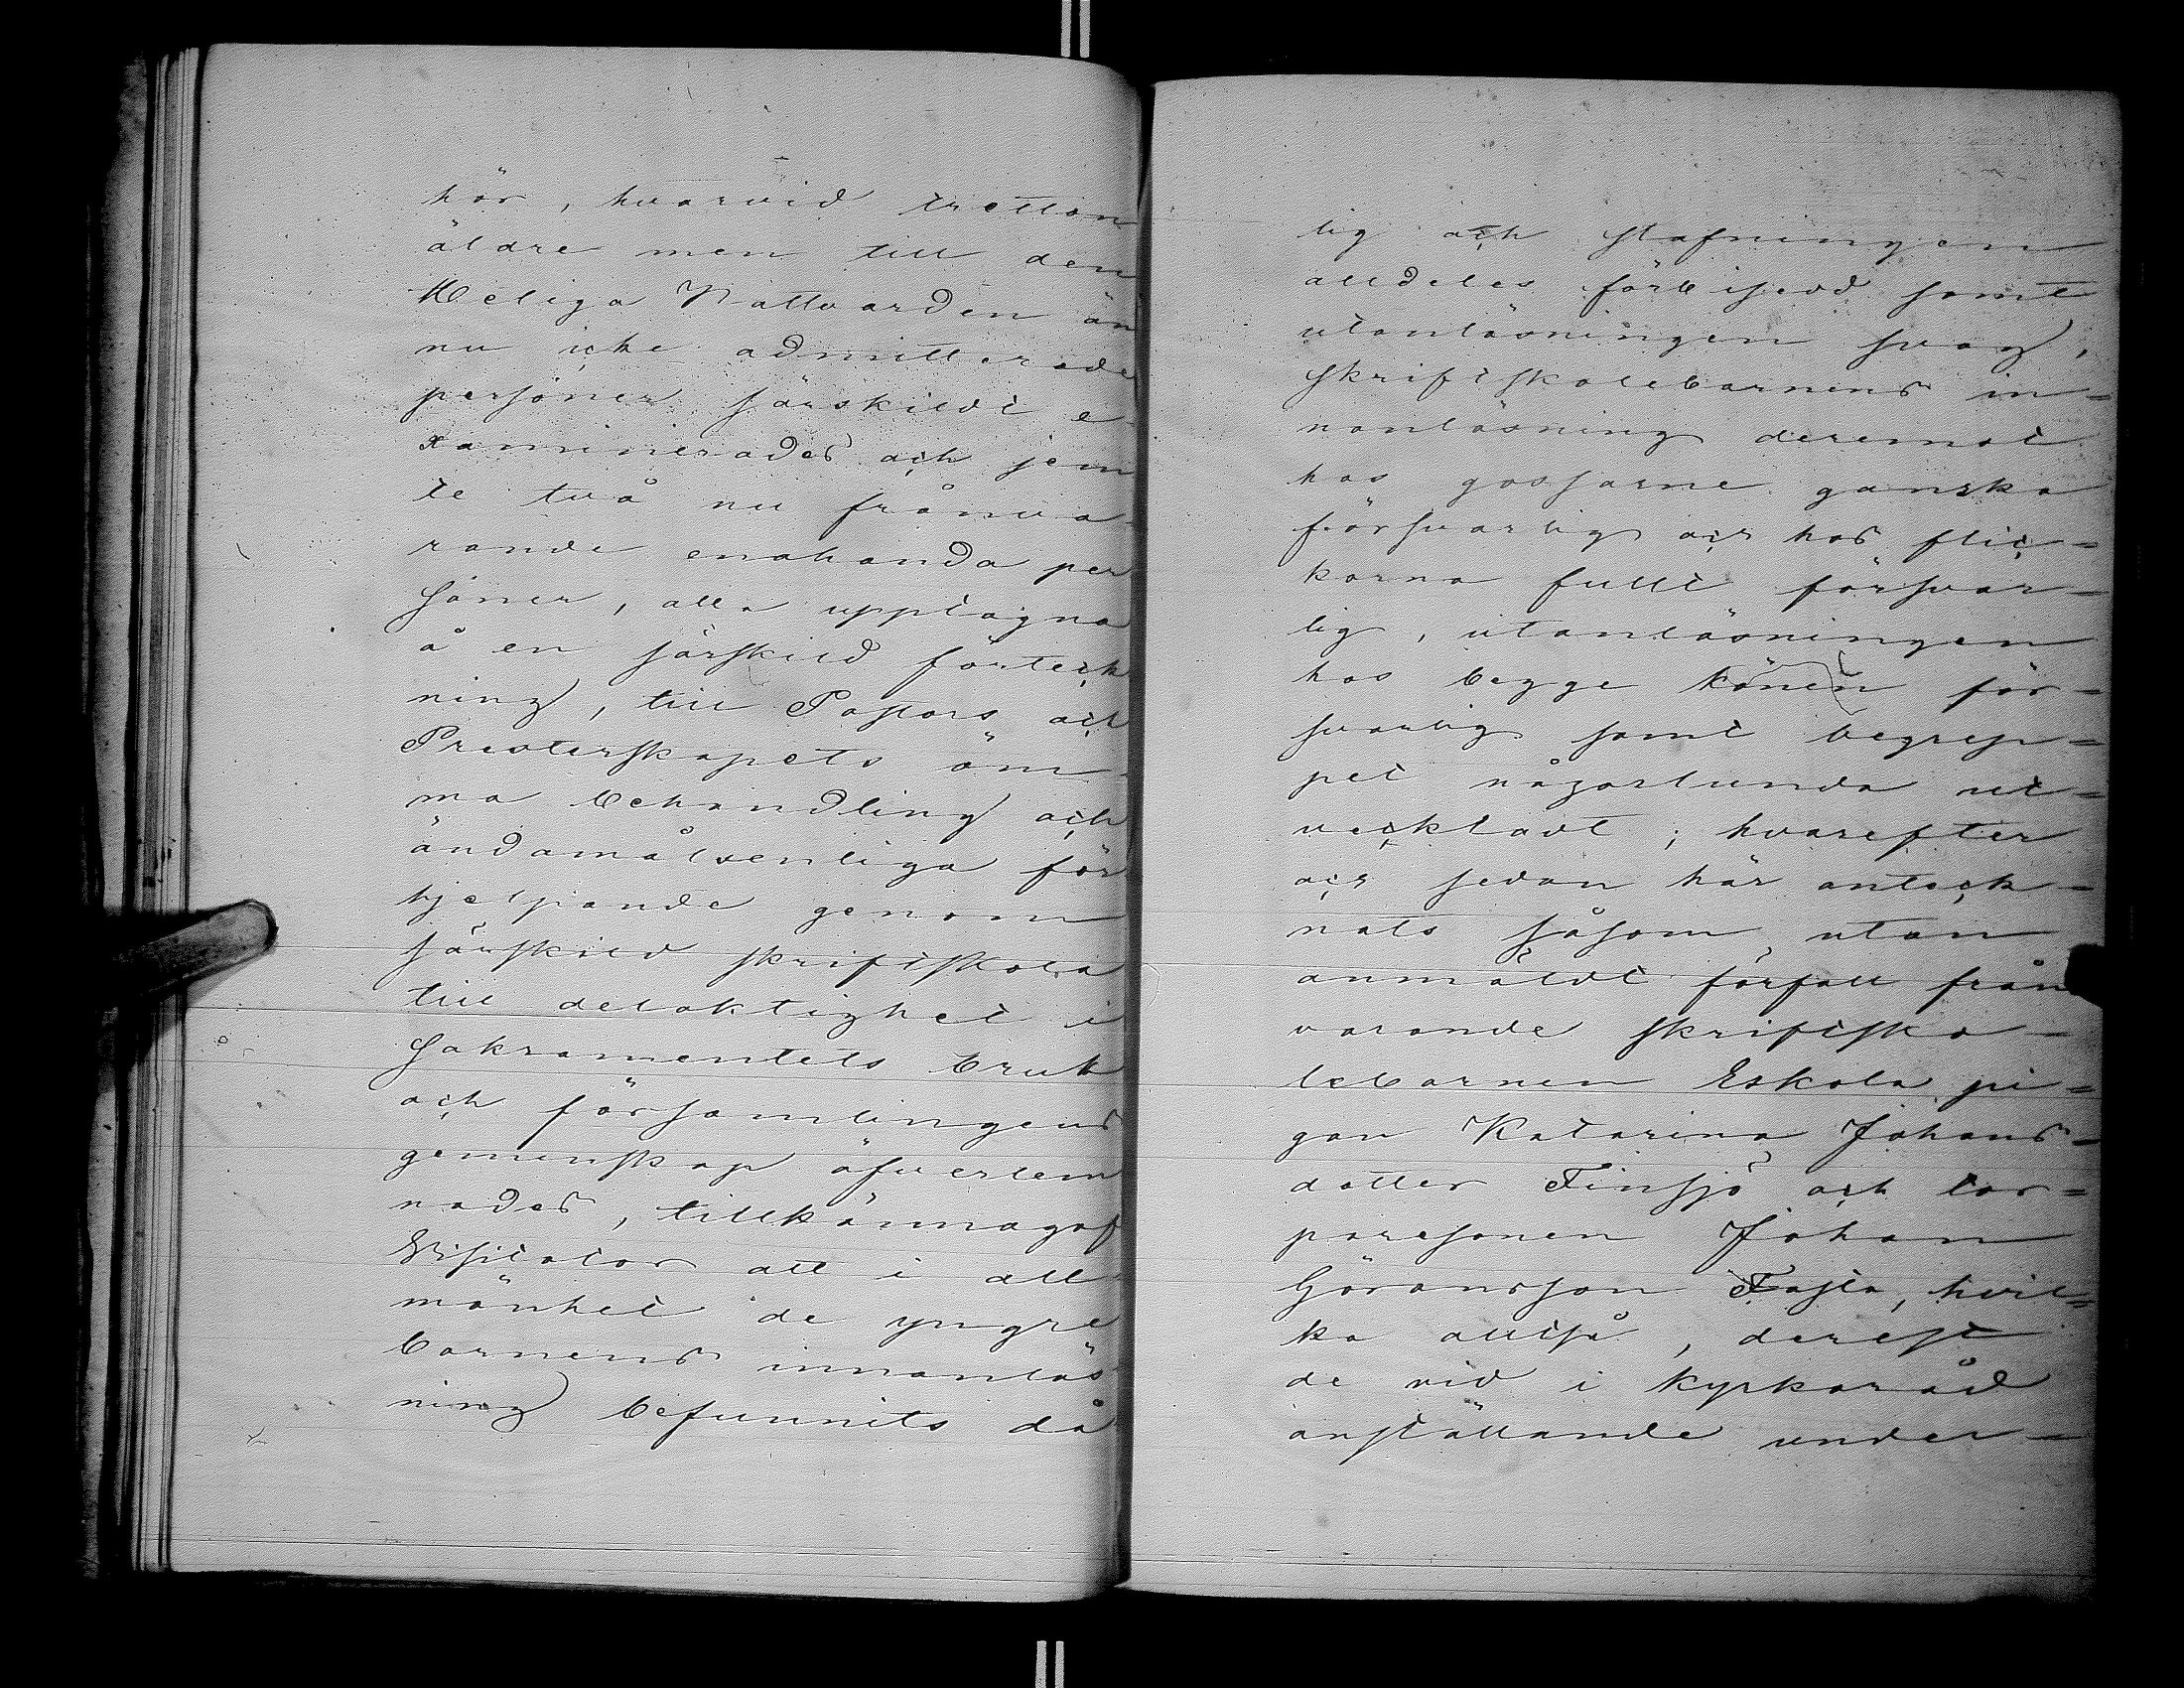 hör, hvarvid tretton
äldre men till den
Heliga Nattvarden än
nu icke admitterade
personer särskildt e
xaminerades och jem
te två nu frånva
rande enahanda per
soner, alla upptagna
å en särskild förteck
ning, till Pastors och
Presterskapets öm
ma behandling och
ändamålsenliga för
hjelpande genom
särskild skriftskola
till delaktighet i
Sakramentets bruk
och församlingens
gemenskap öfverlem
nades, tillkännagaf
Visitator att i all
mänhet de yngre
barnens innanläs
ning befunnits då
lig och stafningen
alldeles förbisedd samt
utanläsningen svag,
skriftskolebarnens in=
nanläsning deremot
hos gossarne ganska
försvarlig och hos flic=
korna fullt försvar=
lig, utanläsningen
hos begge könen för=
svarlig samt begrep=
pet någorlunda ut=
veckladt; hvarefter
och sedan här anteck=
nats såsom utan
anmäldt förfall från
varande skriftsko=
lebarnen Eskola pi=
gan Katarina Johans=
dotter Finsjö och tor=
paresonen Johan
Göransson Fasta, hvil=
ka alltså, derest
de vid i Kyrkoråd
anställande under=